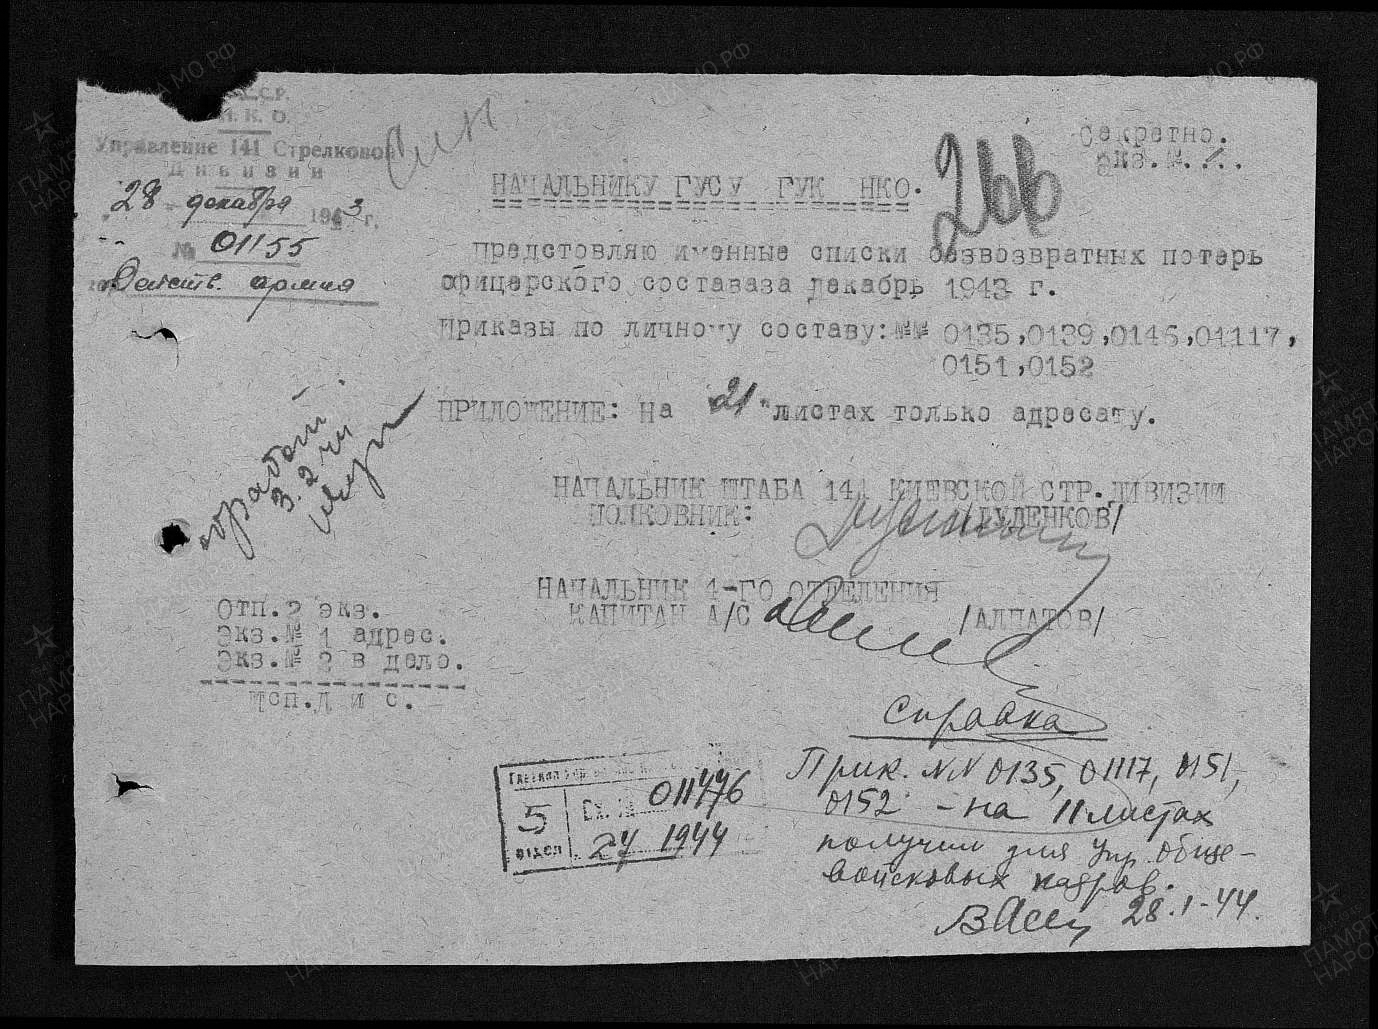 С.С.Р.
Н. К. О.
Управление 141 Стрелковой
Дивизии
28 декабря 1943 г.
№ 01155
Действ. армия
Секретно.
экз.№.1..
266
НАЧАЛЬНИКУ ГУСУ ГУК НКО.
Предстовляю именные списки безвозвратных потерь
офицерского составаза декабрь 1943 г.
Приказы по личному составу:№№ 0135,0139,0146,01117,
0151,0152
ПРИЛОЖЕНИЕ: На 21 листах только адресату.
НАЧАЛЬНИК ШТАБА 141 КИЕВСКОЙ СТР.ДИВИЗИИ
ПОЛКОВНИК: /БУДЕНКОВ/
НАЧАЛЬНИК 4-ГО ОТДЕЛЕНИЯ
КАПИТАН А/С /АЛПАТОВ/
Отп.2 экз.
Экз.№ 1 адрес.
Экз.№ 2 в дело.
Исп.Д и с.
Справка
Прик. NN 0135, 01117, 0151,
0152 - на 11 листах
получил для Упр. обще-
войсковых кадров.
28.1-44.
5
отдел
Вх. № 011476
1944
ПАМЯТЬ НАРОДА
ЦА МО РФ